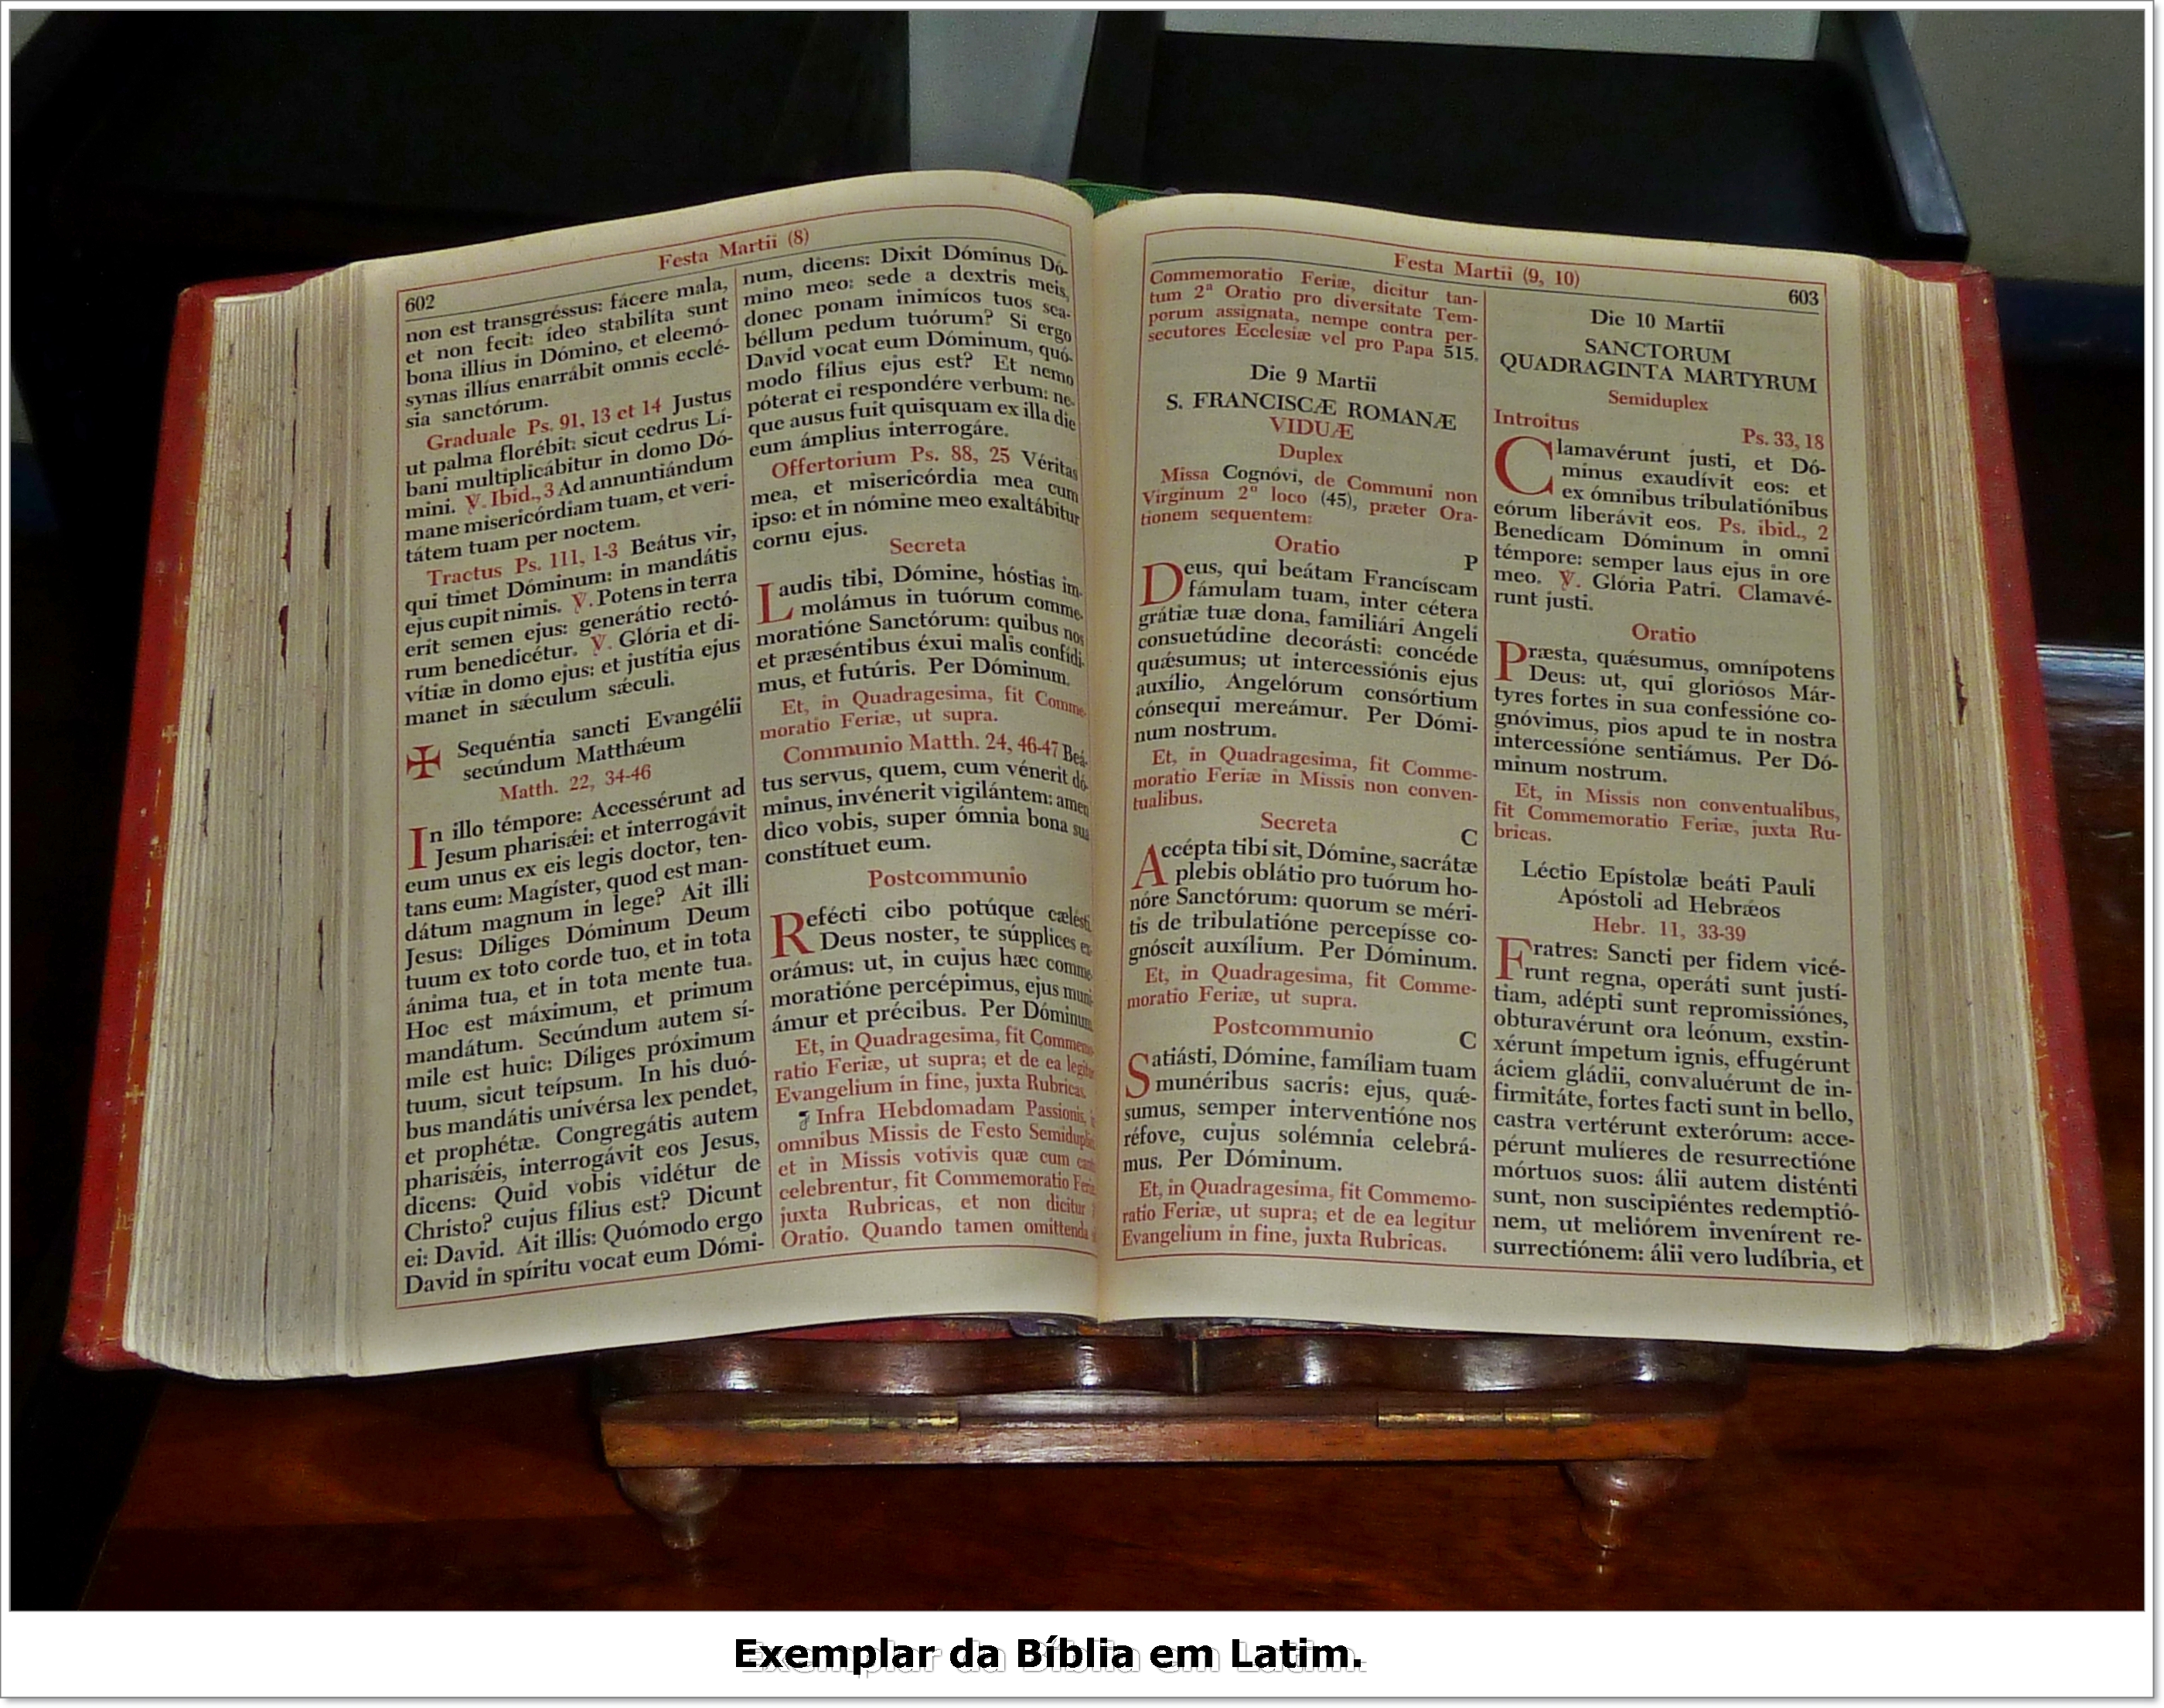 602
Festa Martii (8)
non est transgréssus: fácere mala,
et non fecit: ídeo stabilíta sunt
bona illíus in Dómino, et eleemó-
synas illíus enarrábit omnis ecclé-
sia sanctórum.
Graduale Ps. 91, 13 et 14 Justus
ut palma florébit: sicut cedrus Lí-
bani multiplicábitur in domo Dó-
mini. ℣. Ibid., 3 Ad annuntiándum
mane misericórdiam tuam, et veri-
tátem tuam per noctem.
Tractus Ps. 111, 1-3 Beátus vir,
qui timet Dóminum: in mandátis
ejus cupit nimis. ℣. Potens in terra
erit semen ejus: generátio rectó-
rum benedicétur. ℣. Glória et di-
vítiæ in domo ejus: et justítia ejus
manet in sǽculum sǽculi.
✠ Sequéntia sancti Evangélii
secúndum Matthǽum
Matth. 22, 34-46
In illo témpore: Accessérunt ad
Jesum pharisǽi: et interrogávit
eum unus ex eis legis doctor, ten-
tans eum: Magíster, quod est man-
dátum magnum in lege? Ait illi
Jesus: Díliges Dóminum Deum
tuum ex toto corde tuo, et in tota
ánima tua, et in tota mente tua.
Hoc est máximum, et primum
mandátum. Secúndum autem sí-
mile est huic: Díliges próximum
tuum, sicut teípsum. In his duó-
bus mandátis univérsa lex pendet,
et prophétæ. Congregátis autem
pharisǽis, interrogávit eos Jesus,
dicens: Quid vobis vidétur de
Christo? cujus fílius est? Dicunt
ei: David. Ait illis: Quómodo ergo
David in spíritu vocat eum Dómi-
num, dicens: Dixit Dóminus Dó-
mino meo: sede a dextris meis,
donec ponam inimícos tuos sca-
béllum pedum tuórum? Si ergo
David vocat eum Dóminum, quó-
modo fílius ejus est? Et nemo
póterat ei respondére verbum: ne-
que ausus fuit quisquam ex illa die
eum ámplius interrogáre.
Offertorium Ps. 88, 25 Véritas
mea, et misericórdia mea cum
ipso: et in nómine meo exaltábitur
cornu ejus.
Secreta
Laudis tibi, Dómine, hóstias im-
molámus in tuórum comme-
moratióne Sanctórum: quibus nos
et præséntibus éxui malis confídi-
mus, et futúris. Per Dóminum.
Et, in Quadragesima, fit Comme-
moratio Feriæ, ut supra.
Communio Matth. 24, 46-47 Beá-
tus servus, quem, cum vénerit dó-
minus, invénerit vigilántem: amen
dico vobis, super ómnia bona sua
constítuet eum.
Postcommunio
Refécti cibo potúque cælésti,
Deus noster, te súpplices ex-
orámus: ut, in cujus hæc comme-
moratióne percépimus, ejus muni-
ámur et précibus. Per Dóminum.
Et, in Quadragesima, fit Commemo-
ratio Feriæ, ut supra; et de ea legitur
Evangelium in fine, juxta Rubricas.
Infra Hebdomadam Passionis,
omnibus Missis de Festo Semiduplici
et in Missis votivis quæ cum
celebrentur, fit Commemoratio Feriæ
juxta Rubricas, et non dicitur
Oratio. Quando tamen omittenda
Festa Martii (9, 10)
603
Commemoratio Feriæ, dicitur tan-
tum 2ª Oratio pro diversitate Tem-
porum assignata, nempe contra per-
secutores Ecclesiæ vel pro Papa 515.
Die 9 Martii
S. FRANCISCÆ ROMANÆ
VIDUÆ
Duplex
Missa Cognóvi, de Communi non
Virginum 2º loco (45), præter Ora-
tionem sequentem:
Oratio P
Deus, qui beátam Francíscam
fámulam tuam, inter cétera
grátiæ tuæ dona, familiári Angeli
consuetúdine decorásti: concéde
quǽsumus; ut intercessiónis ejus
auxílio, Angelórum consórtium
cónsequi mereámur. Per Dómi-
num nostrum.
Et, in Quadragesima, fit Comme-
moratio Feriæ in Missis non conven-
tualibus.
Secreta C
Accépta tibi sit, Dómine, sacrátæ
plebis oblátio pro tuórum ho-
nóre Sanctórum: quorum se méri-
tis de tribulatióne percepísse co-
gnóscit auxílium. Per Dóminum.
Et, in Quadragesima, fit Comme-
moratio Feriæ, ut supra.
Postcommunio C
Satiásti, Dómine, famíliam tuam
munéribus sacris: ejus, quǽ-
sumus, semper interventióne nos
réfove, cujus solémnia celebrá-
mus. Per Dóminum.
Et, in Quadragesima, fit Commemo-
ratio Feriæ, ut supra; et de ea legitur
Evangelium in fine, juxta Rubricas.
Die 10 Martii
SANCTORUM
QUADRAGINTA MARTYRUM
Semiduplex
Introitus Ps. 33, 18
Clamavérunt justi, et Dó-
minus exaudívit eos: et
ex ómnibus tribulatiónibus
eórum liberávit eos. Ps. ibid., 2
Benedícam Dóminum in omni
témpore: semper laus ejus in ore
meo. ℣. Glória Patri. Clamavé-
runt justi.
Oratio
Præsta, quǽsumus, omnípotens
Deus: ut, qui gloriósos Már-
tyres fortes in sua confessióne co-
gnóvimus, pios apud te in nostra
intercessióne sentiámus. Per Dó-
minum nostrum.
Et, in Missis non conventualibus,
fit Commemoratio Feriæ, juxta Ru-
bricas.
Léctio Epístolæ beáti Pauli
Apóstoli ad Hebrǽos
Hebr. 11, 33-39
Fratres: Sancti per fidem vicé-
runt regna, operáti sunt justí-
tiam, adépti sunt repromissiónes,
obturavérunt ora leónum, exstin-
xérunt ímpetum ignis, effugérunt
áciem gládii, convaluérunt de in-
firmitáte, fortes facti sunt in bello,
castra vertérunt exterórum: acce-
pérunt mulíeres de resurrectióne
mórtuos suos: álii autem disténti
sunt, non suscipiéntes redemptió-
nem, ut meliórem invenírent re-
surrectiónem: álii vero ludíbria, et
Exemplar da Bíblia em Latim.